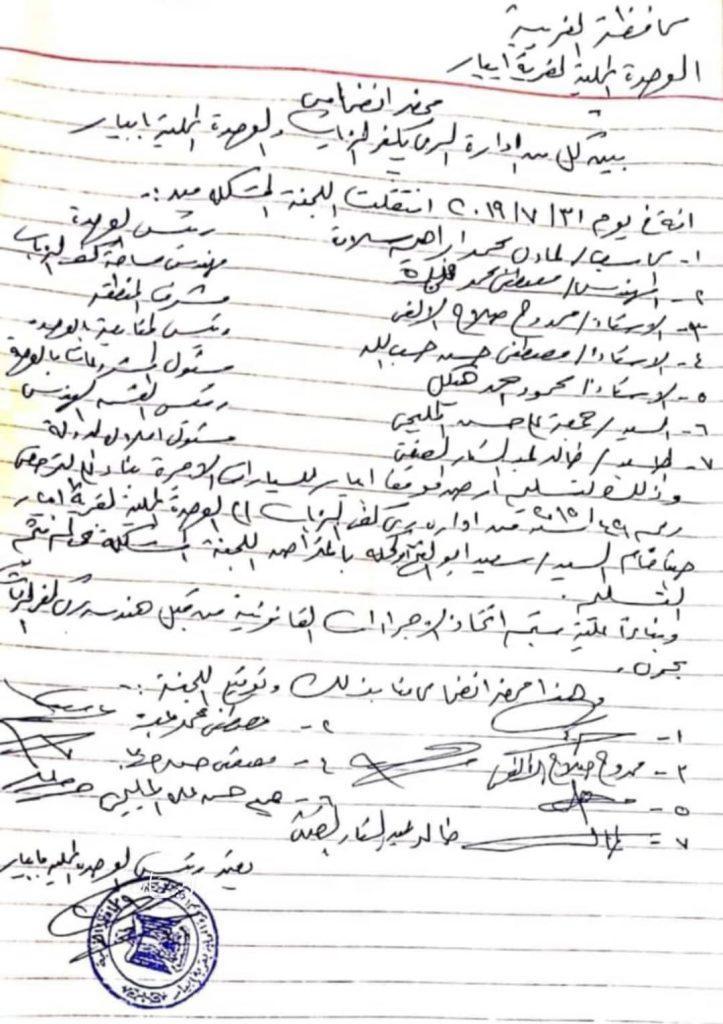 محافظة الغربية
الوحدة المحلية لقرية ابيار
محضر انضمامى
بين كل من ادارة الرى بكفر الزيات والوحدة المحلية بابيار
انة فى يوم ٢٠١٩/٧/٣١ انتقلت اللجنة المشكلة من :-
١- محاسب/ عادل محمد ابراهيم سلامة رئيس الوحدة
٢- المهندس/ مصطفى محمد مهندس مساحة كفر الزيات
٣- الاستاذ/ ممدوح صلاح الالفى مشرف المنطقة
٤- الاستاذ/ مصطفى حسن حسب الله رئيس المتابعة بالوحدة
٥- الاستاذ/ محمود احمد هيكل مسئول المشروعات بالوحدة
٦- السيد/ جمعة حسن المليجى رئيس القسم الهندسى
٧- السيد/ خالد عبد الستار مسئول املاك الدولة
وذلك لتسليم ارض موقف ابيار للسيارات الاجرة بناء على الترخيص
رقم لسنة ٢٠١٥ من ادارة رى كفر الزيات الى الوحدة المحلية لقرية ابيار
حيث قام السيد/ سعيد ابو الفتوح باعتراض اللجنة المشكلة فلم يتم
التسليم .
وبناء علية سيتم اتخاذ الاجراءات القانونية من قبل هندسة رى كفر الزيات
بحرى .
وهذا محضر انضمامى منا بذلك وتوقيع اللجنة :-
١-
٢- مصطفى محمد
٣- ممدوح صلاح الالفى
٤- مصطفى حسن
٥-
٦- جمعة حسن المليجى
٧- خالد عبد الستار
يعتمد رئيس الوحدة المحلية بابيار